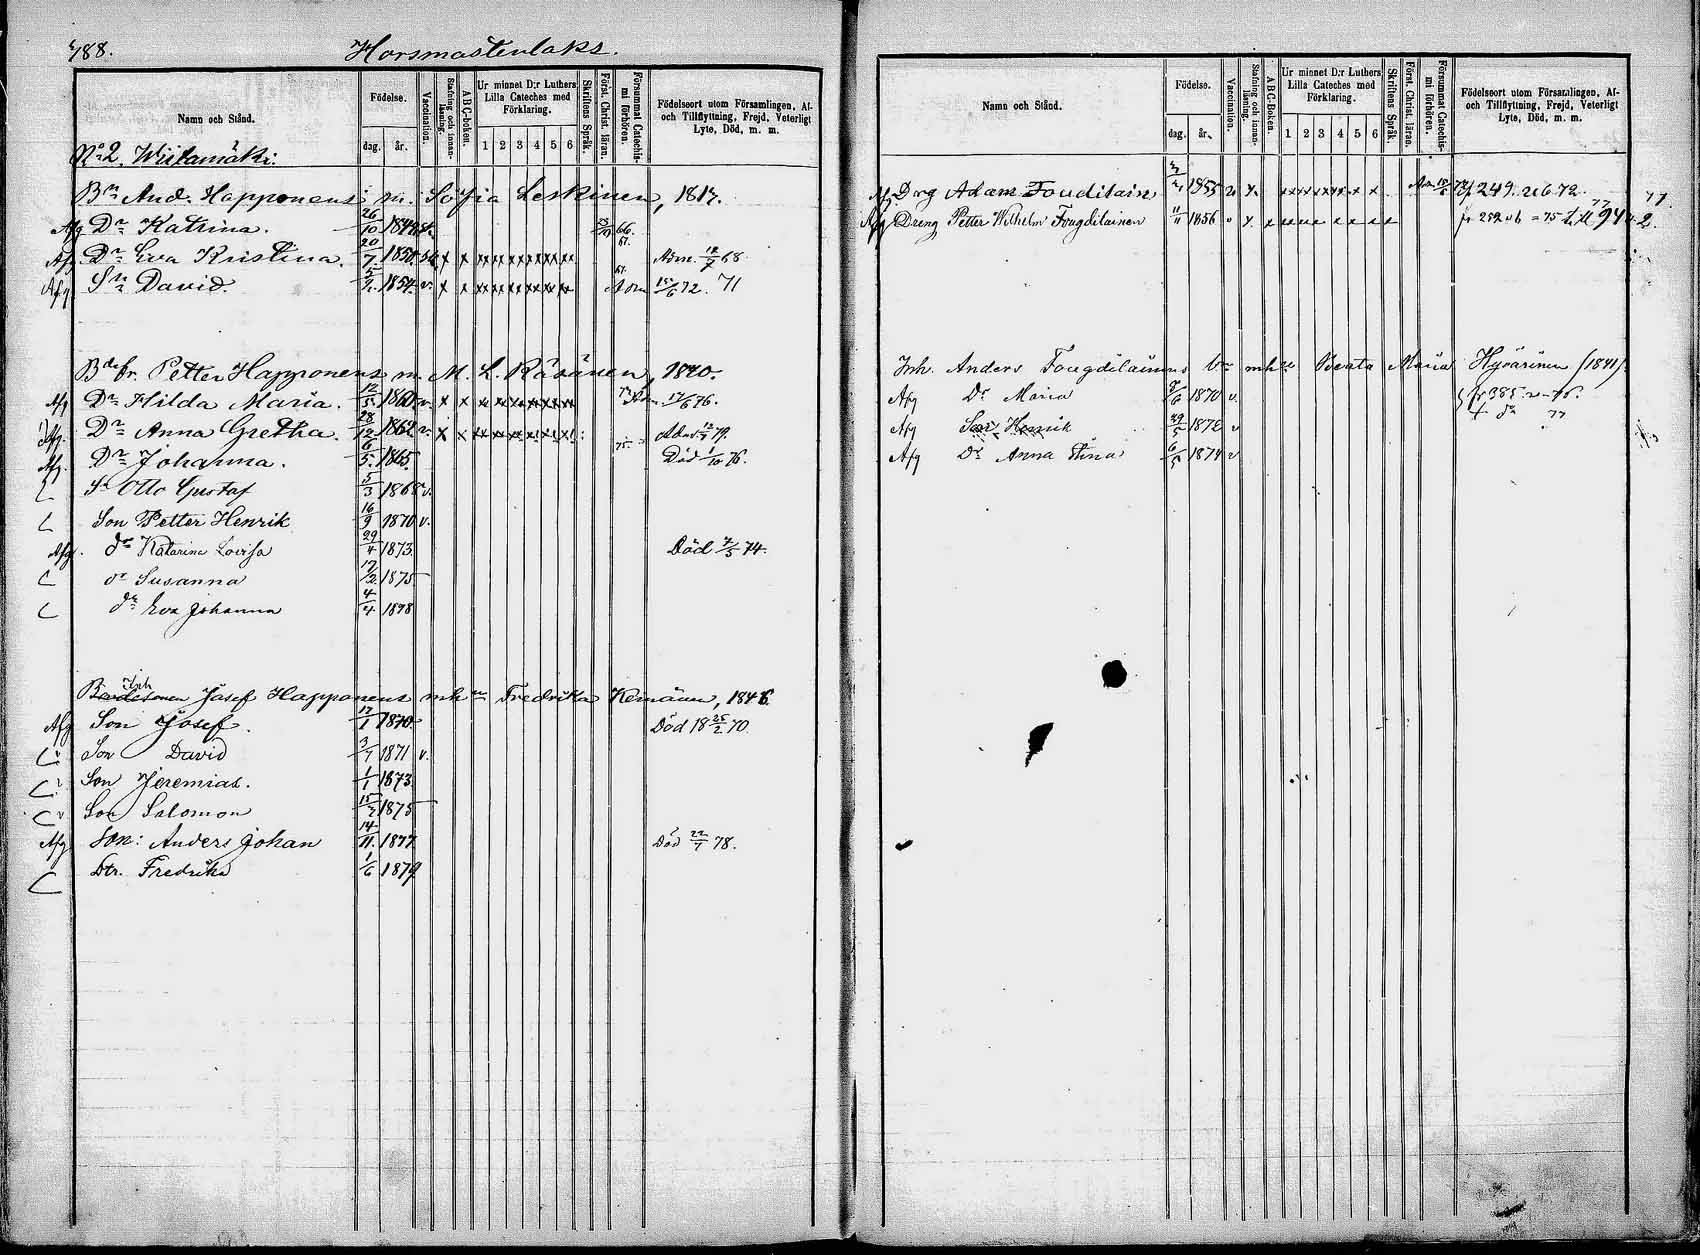 188. Horsmastenlaks.
Namn och Stånd.
Födelse.
dag. år.
Vaccination.
Stafning och innan-läsning.
ABC-boken.
Ur minnet D:r Luthers Lilla Cateches med Förklaring.
1 2 3 4 5 6
Skriftens Språk.
Först. Christ. läran.
Försummat Catechis-mi förhören.
Födelseort utom Församlingen, Af- och Tillflyttning, Frejd, Veterligt Lyte, Död, m. m.
No 2. Wiitamäki.
Bn And. Happonens m. Sofia Leskinen, 1817.
Afg Dr Katrina. 26/10 66.
Afg Dr Eva Kristina. 20/7. 1850. x x xx xx xx xx xx xx 61. Adm. 12/7 68
Afg Sn David. 1854. v. x x xx xx xx xx xx xx 61. Adm 15/6 72. 71
Bdefr. Petter Happonens m. M. L. Räsänen, 1840.
Afg Dr Hilda Maria. 12/5. 1860. v. x x xx xx xx xx xx xx 17/6 76.
Afg. Dr Anna Gretha. 28/12 1862 v. x x 75. 79.
Afg. Dr Johanna. 6/5. 1865. Död 1/10 76.
Sn Otto Gustaf 5/3 1868 v.
Son Petter Henrik 16/9 1870 v.
Afg. dr Katarina Lovisa 29/4 1873. Död 7/5 74.
dr Susanna 17/2. 1875
dr Eva Johanna 4/4 1878
Inh Josef Happonens mh Fredrika 1846.
Afg Son Josef. 17/1 1870. Död 18 25/2 70.
Son David 3/7 1871 v.
Son Jeremias. 1/1 1873.
Son Salomon 15/2 1875
Afg Son: Anders Johan 14/11. 1877. Död 22/7 78.
Dtr. Fredrika 1/6 1879.
Namn och Stånd.
Födelse.
dag. år.
Vaccination.
Stafning och innan-läsning.
ABC-Boken.
Ur minnet D:r Luthers Lilla Cateches med Förklaring.
1 2 3 4 5 6
Skriftens Språk.
Först. Christ. läran.
Försummat Catechis-mi förhören.
Födelseort utom Församlingen, Af- och Tillflyttning, Frejd, Veterligt Lyte, Död, m. m.
Afg Drg Adam Fouditain 1855 Adm 15/6 72 249. 72. 71
Afg Dreng Petter Wilhelm Fougdilainen 11/11 1856 v x x fr 75 77
Inh. Anders Fougdiläinens mh Beata Maria Hyvärinen (1841).
Afg Dr Maria 1870 v. fr 385
Afg Son Henrik 29/5 1872 v
Afg Dr Anna Stina 6/5 1874 v